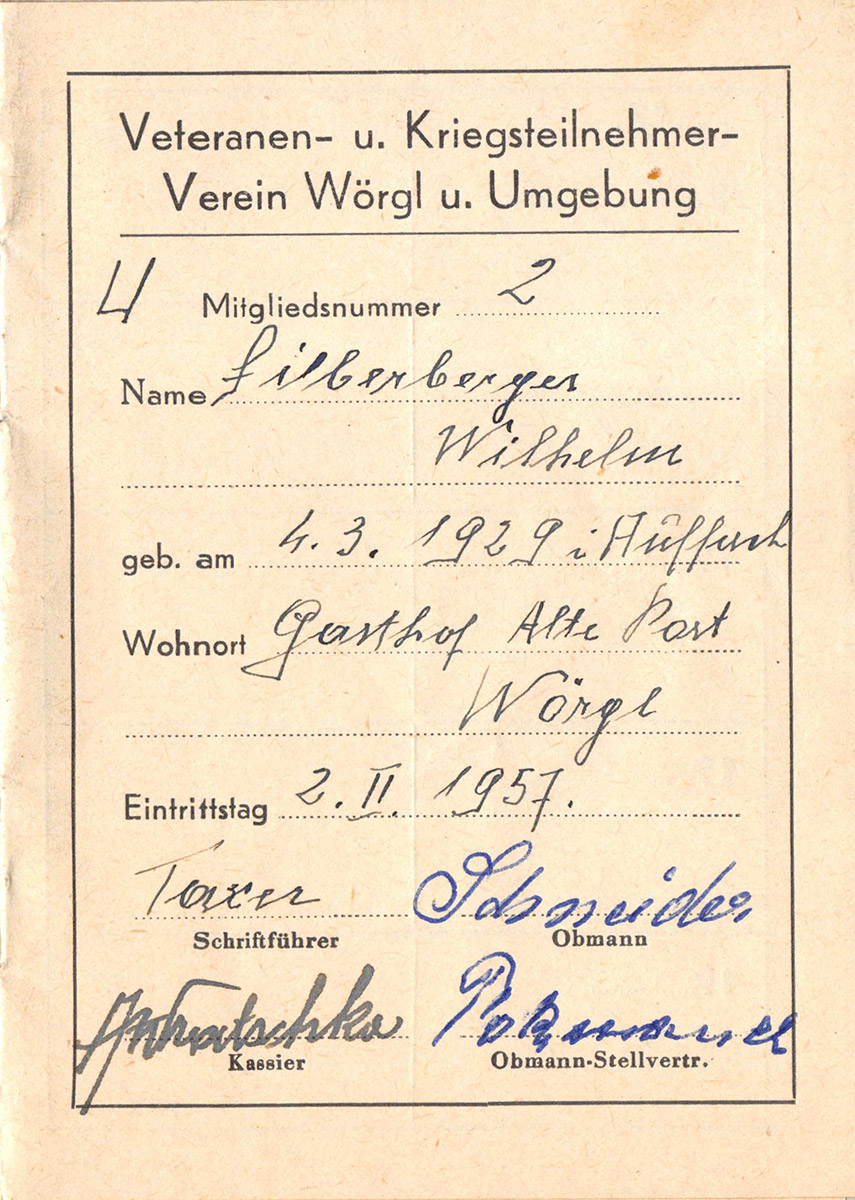 Veteranen- u. Kriegsteilnehmer-
Verein Wörgl u. Umgebung
4 Mitgliedsnummer 2
Name Silberberger
Wilhelm
geb. am 4. 3. 1929 i.
Wohnort Gasthof Alte Post
Wörgl
Eintrittstag 2. II. 1957.
Taxer Schneider
Schriftführer Obmann
Kassier Obmann-Stellvertr.